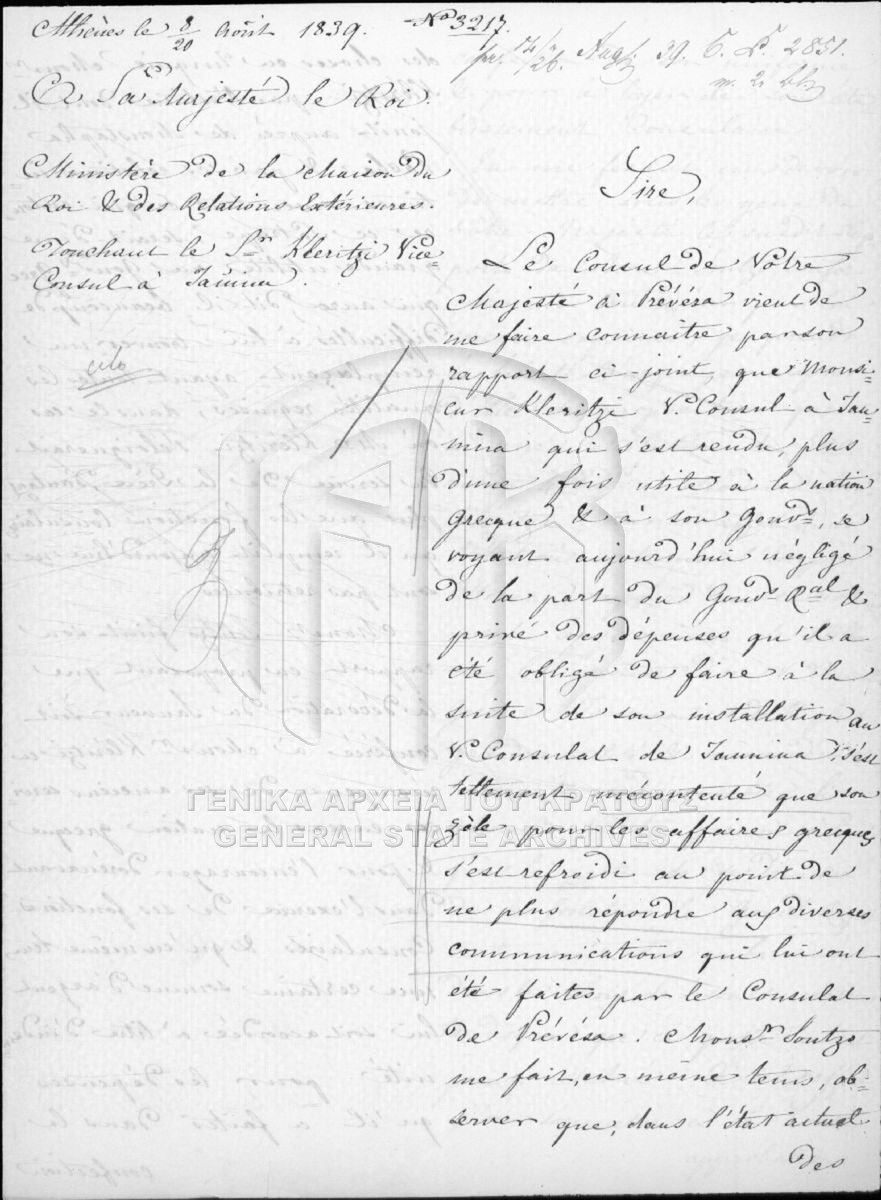 Athènes le 8/20 Août 1839. No 3217.
pr. 14/26. Aug 39. C. P. 2851.
m. 2 bl
A Sa Majesté le Roi.
Ministère de la Maison du
Roi & des Relations Extérieures.
Touchant le Sr. Kleritzi Vice-
Consul à Jannina.
cito
Sire,
Le Consul de Votre
Majesté à Prévésa vient de
me faire connaître par son
rapport ci-joint, que Monsi=
eur Kleritzi V. Consul à Jan=
nina qui s'est rendu, plus
d'une fois utile à la nation
grecque & à son Gouvt, se
voyant aujourd'hui négligé
de la part du Gouvt Ral &
privé des dépenses qu'il a
été obligé de faire à la
suite de son installation au
V. Consulat de Jannina, s'est
tellement mécontenté que son
zèle pour les affaires grecques
s'est refroidi au point de
ne plus répondre aux diverses
communications qui lui ont
été faites par le Consulat
de Prévésa. Monsr Soutzo
me fait, en même tems, ob=
server que, dans l'état actuel
des
ΓΕΝΙΚΑ ΑΡΧΕΙΑ ΤΟΥ ΚΡΑΤΟΥΣ
GENERAL STATE ARCHIVES